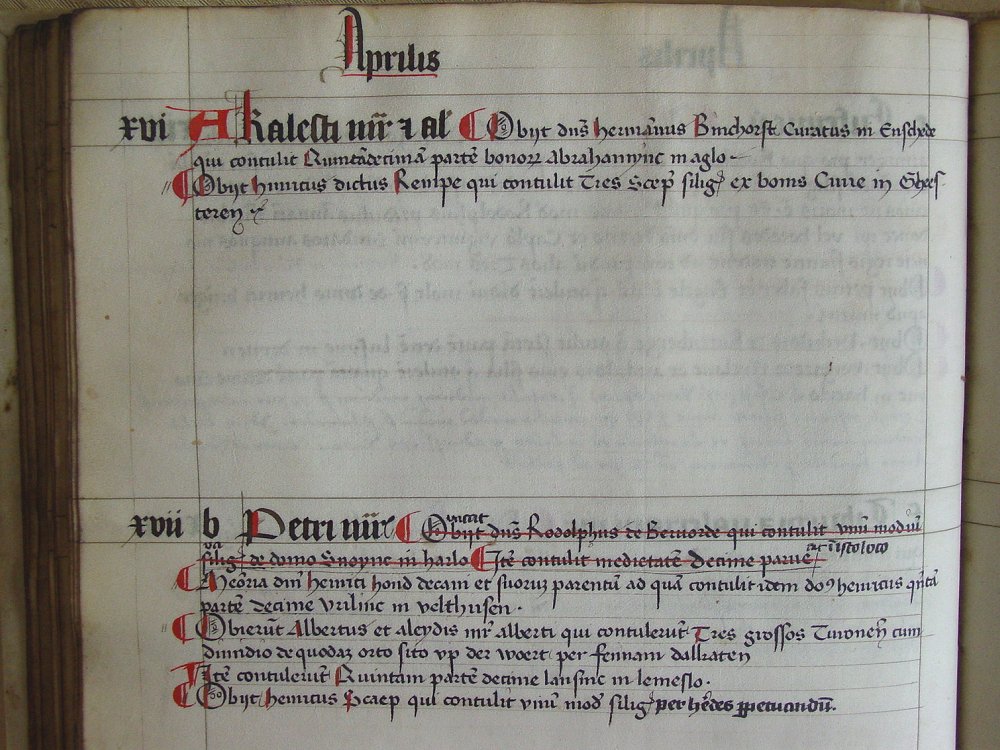 Aprilis
xvi A Kalesti mr̄ ⁊ al Obijt dn̄s hermānus Binchorst Curatus in Enschede
qui contulit partē bonorꝝ Abrahamync in aglo
Obijt hinricus dictus Rempe qui contulit Tres Scep siliḡ ex bonis Cuire in Ghees-
teren
xvii b Petri mr̄ Obijt dn̄s Rodolphus de Bervorde qui contulit vnū modiū
siliḡ de domo Snoync in harlo Itē contulit medietatē Decime parue
Meōria dn̄i heinrici hond decani et suorum parentū ad quā contulit idem dō heinricus qn̄tā
partē decime vrilinc in velthusen
Obierūt Albertus et aleydis mr̄ alberti qui contulerūt Tres grossos Turoneñ cum
dimidio de quodaz orto sito vp der woert per fennam dalkaten
Itē contulerūt Quintam partē decime lansinc in lemeslo
Obijt heinricus Scaep qui contulit vnū mod̄ siliḡ per hēdes ꝑpetuandū.